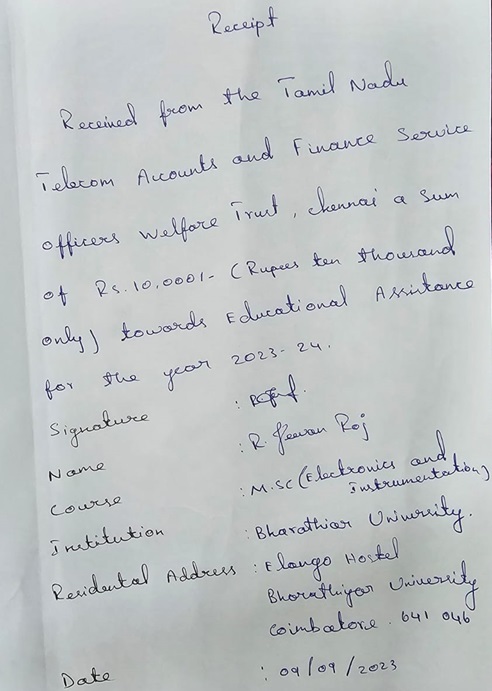 Receipt
Received from the Tamil Nadu
Telecom Accounts and Finance Service
officers Welfare Trust, chennai a sum
of Rs. 10,000/- (Rupees ten thousand
only) towards Educational Assistance
for the year 2023-24.
Signature :
Name : R. Jeevan Raj
Course : M.SC (Electronics and
Instrumentation)
Institution : Bharathiar University.
Residental Address : Elango Hostel
Bharathiyar University
Coimbatore. 641 046
Date : 09/09/2023